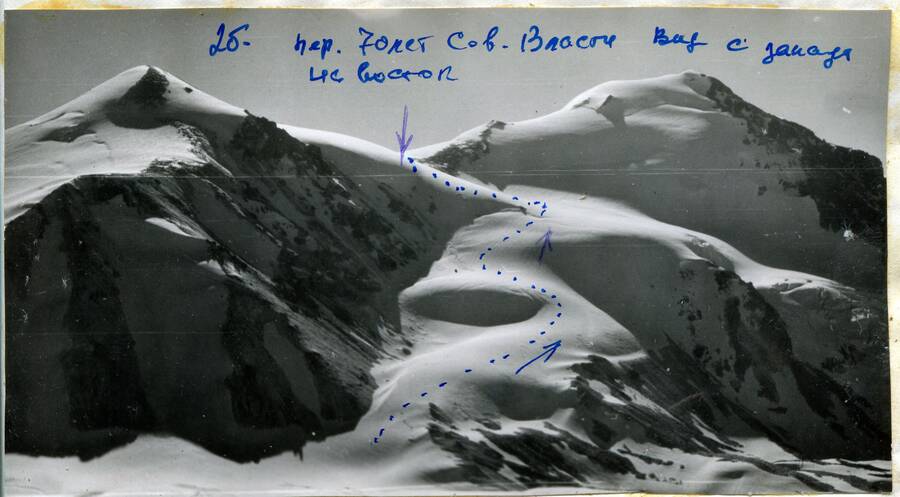 2б. пер. 70 лет Сов. Власти Вид с запада
на восток